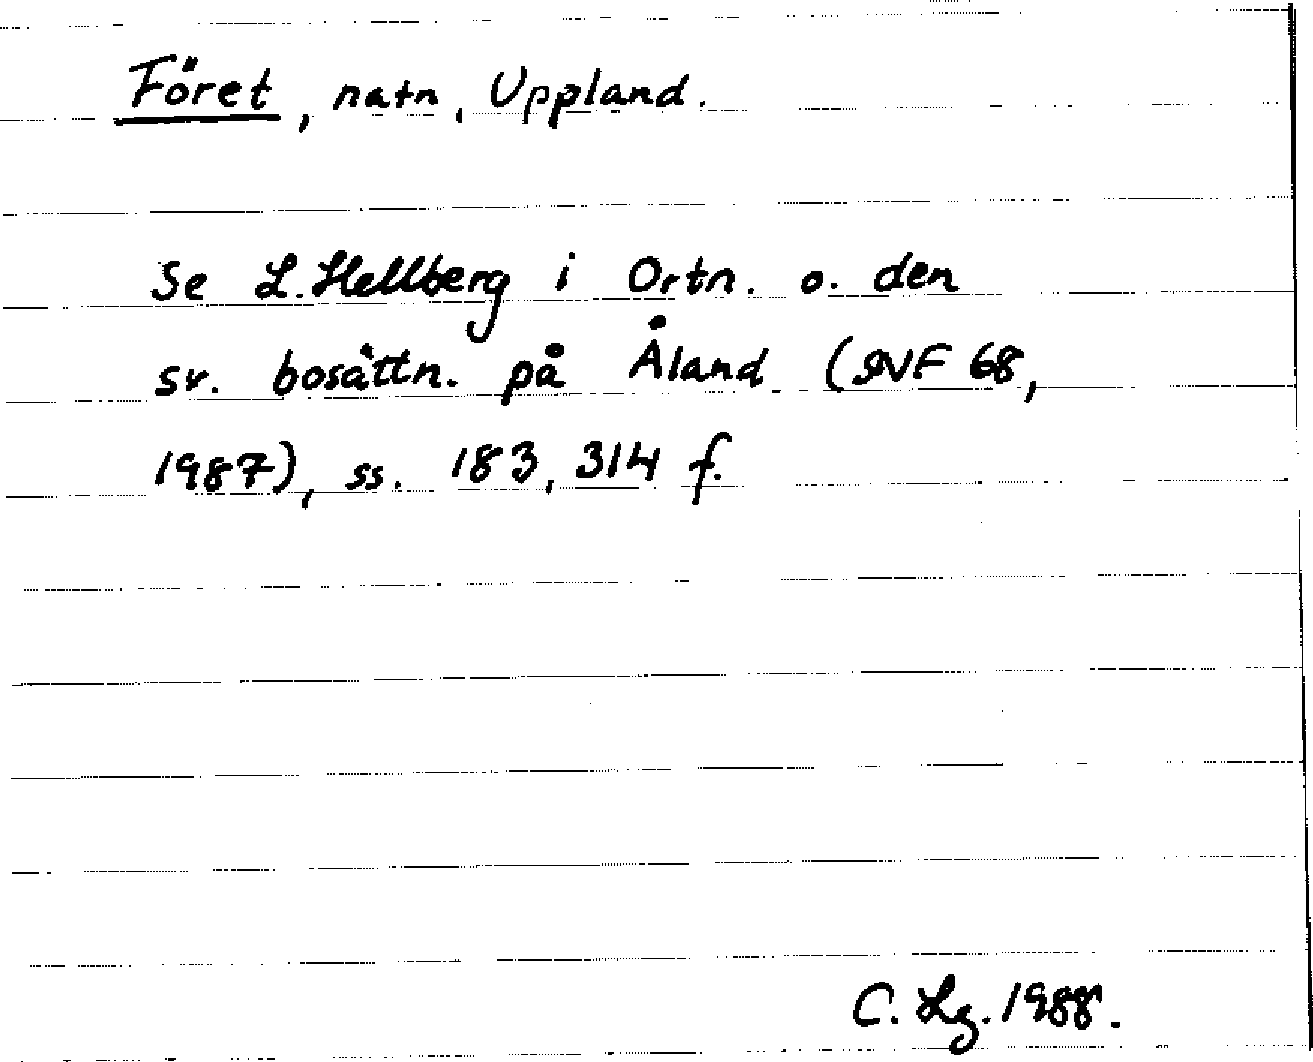 Föret, natn, Uppland.
Se L. Hellberg i Ortn. o. den
sv. bosättn. på Åland (SNF 68,
1987), ss. 183, 314 f.
C. Lg. 1988.